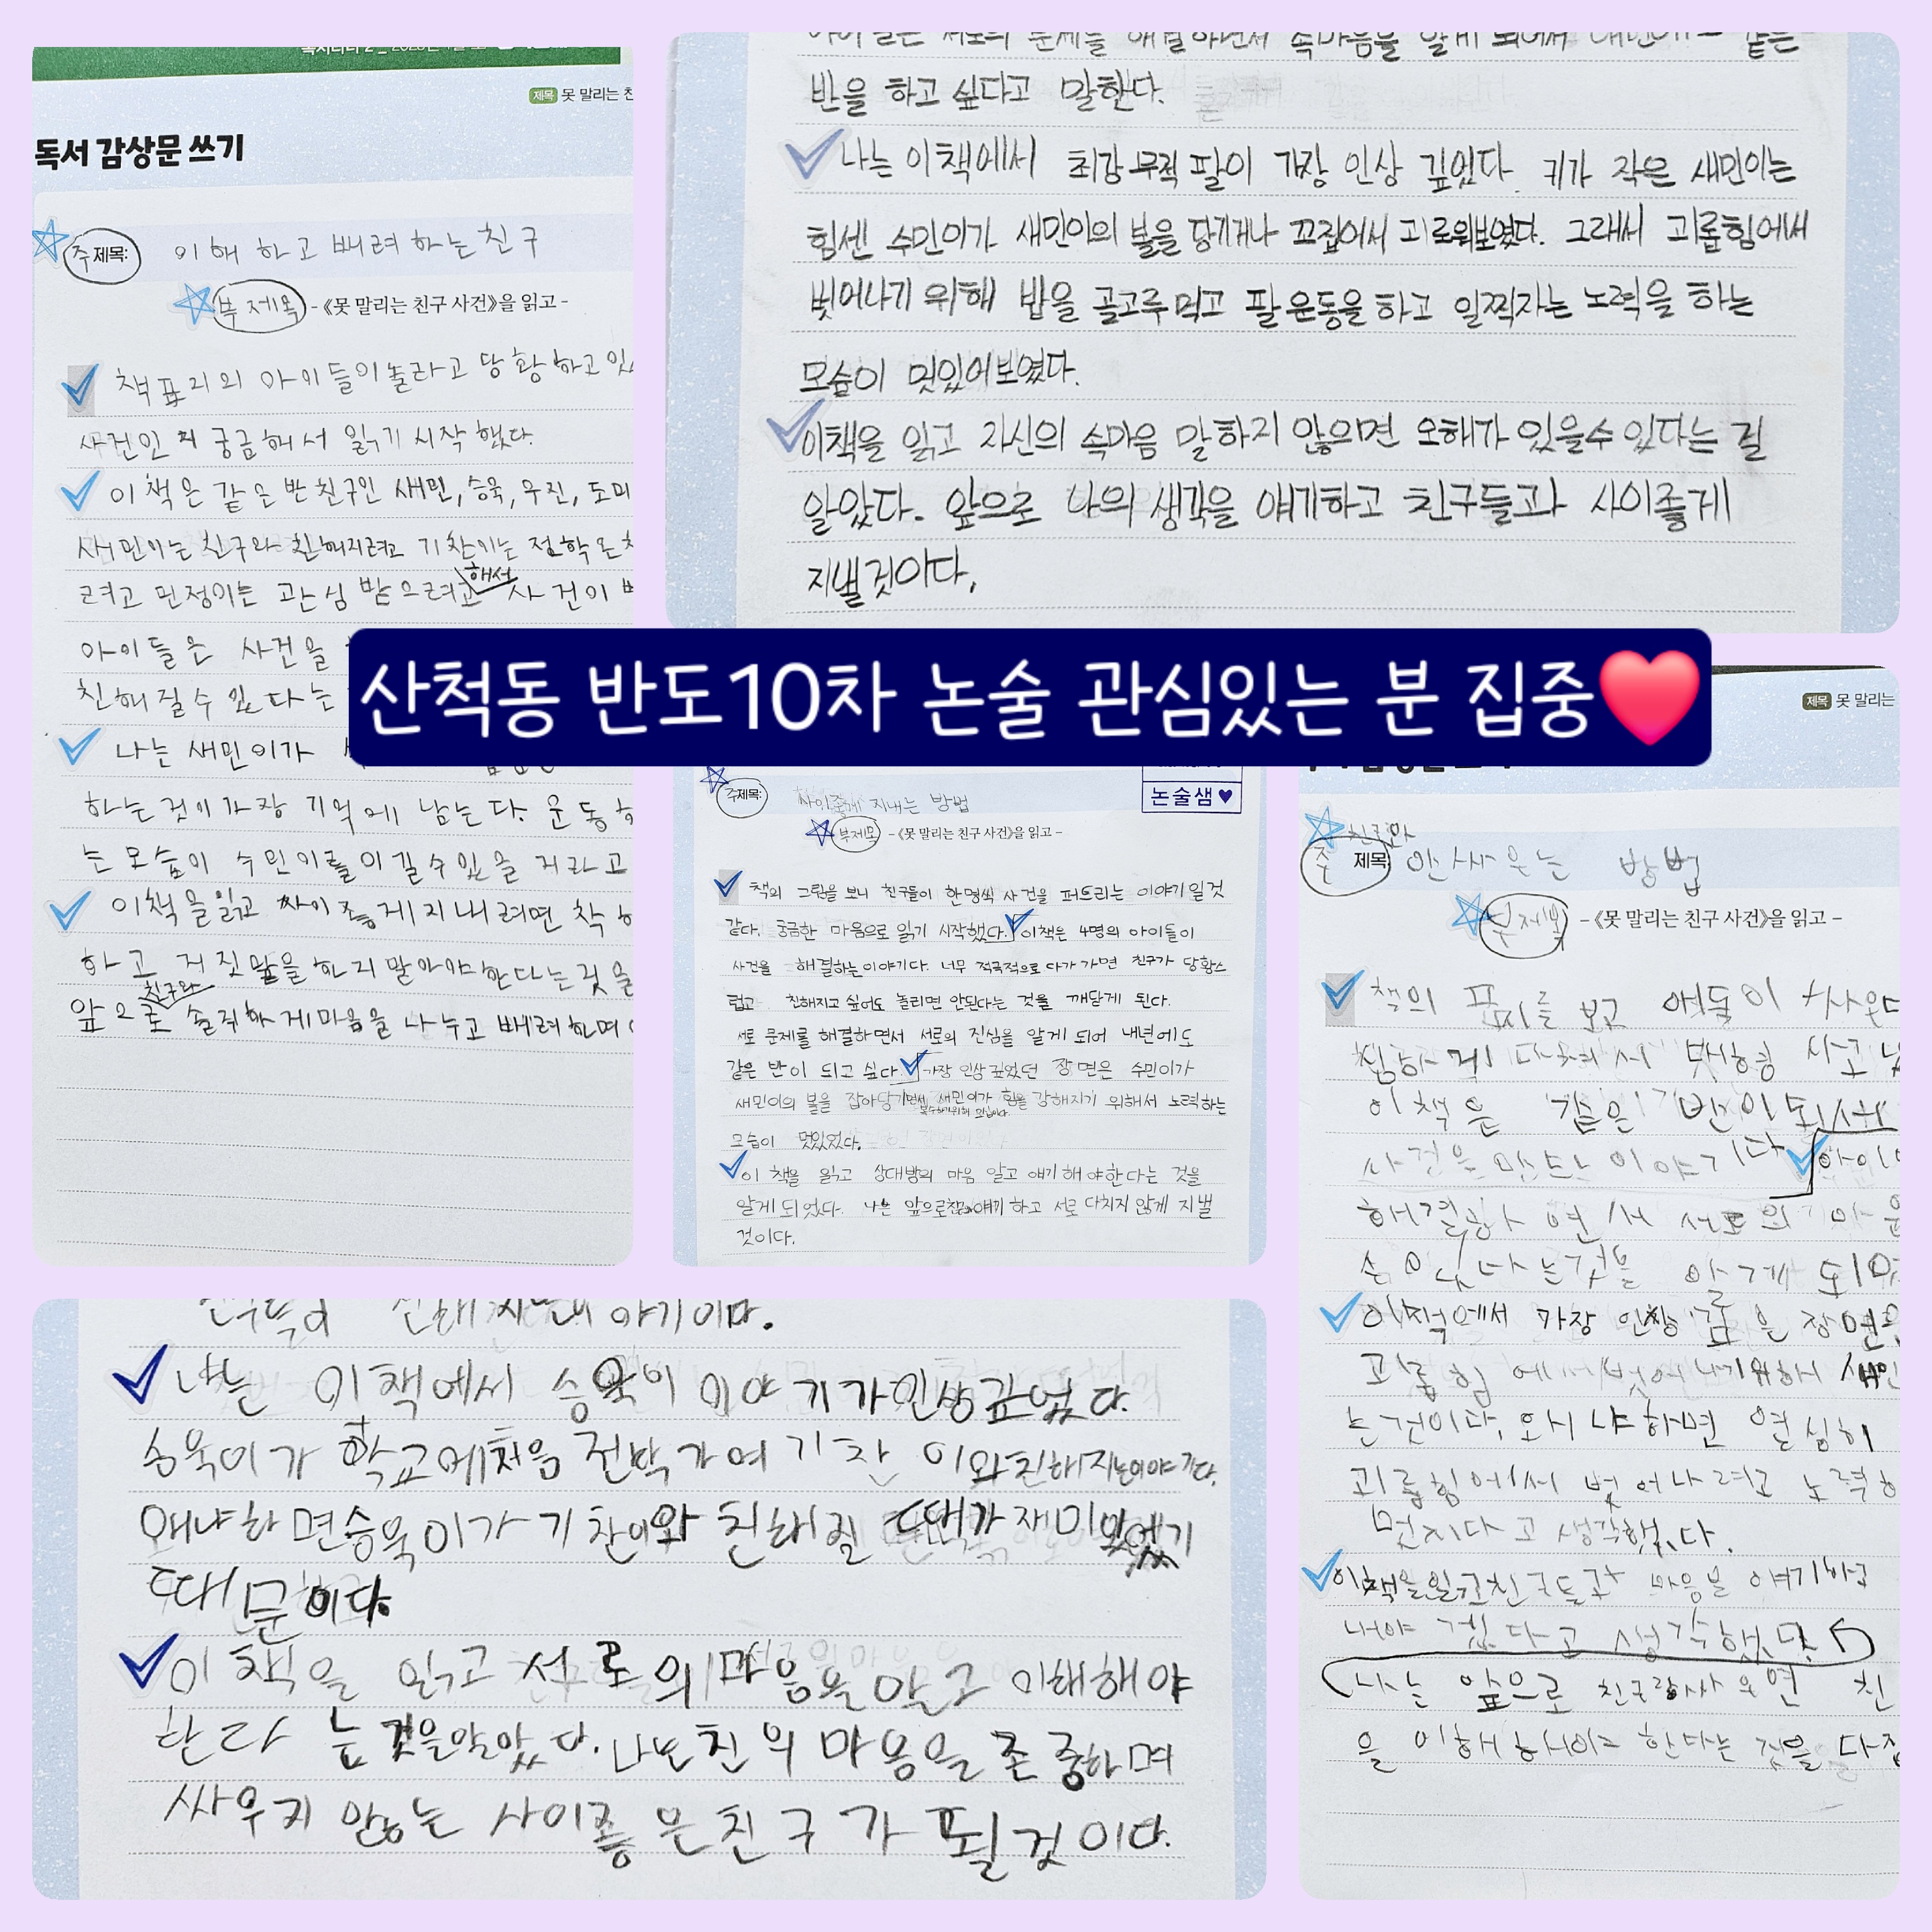 제목 못 말리는 친
독서 감상문 쓰기
주 제목: 이해 하고 배려 하는 친구
부 제목 -《못 말리는 친구 사건》을 읽고 -
책 표지의 아이들이 놀라고 당황하고 있
사건인지 궁금해서 읽기 시작 했다.
이 책은 같은 반 친구인 새민, 승욱, 우진, 도미
새민이는 친구와 친해지려고 기찬이는 전학 온
려고 민정이는 관심 받으려고 해서 사건이
아이들은 사건을
친해 질수 있다는
나는 새민이가
하는 것이 가장 기억에 남는다. 운동
는 모습이 수민이를 이길수 있을 거라고
이 책을 읽고 사이 좋게 지내려면 착
하고 거짓말을 하지 말아야 한다는 것을
앞으로 친구와 솔직하게 마음을 나누고 배려하며
반을 하고 싶다고 말한다.
나는 이책에서 최강 무적 팔이 가장 인상 깊었다. 키가 작은 새민이는
힘센 수민이가 새민이의 볼을 당기거나 꼬집어서 괴로워보였다. 그래서 괴롭힘에서
벗어나기 위해 밥을 골고루 먹고 팔 운동을 하고 일찍자는 노력을 하는
모습이 멋있어보였다.
이책을 읽고 자신의 속마음 말하지 않으면 오해가 있을수 있다는 걸
알았다. 앞으로 나의 생각을 얘기하고 친구들과 사이좋게
지낼것이다.
산척동 반도10차 논술 관심있는 분 집중❤️
논술샘♥
주제목: 사이좋게 지내는 방법
부제목 -《못 말리는 친구 사건》을 읽고 -
책의 그림을 보니 친구들이 한명씩 사건을 퍼트리는 이야기일 것
같다. 궁금한 마음으로 읽기 시작했다. 이책은 4명의 아이들이
사건을 해결하는이야기다. 너무 적극적으로 다가 가면 친구가 당황스
럽고 친해지고 싶어도 놀리면 안된다는 것을 깨닫게 된다.
서로 문제를 해결하면서 서로의 진심을 알게 되어 내년에도
같은 반이 되고 싶다. 가장 인상 깊었던 장면은 수민이가
새민이의 볼을 잡아당기면서 새민이가 힘을 강해지기 위해서 노력하는
모습이 멋있었다.
이 책을 읽고 상대방의 마음 알고 얘기 해야한다는 것을
알게 되었다. 나는 앞으로 얘기 하고 서로 다치지 않게 지낼
것이다.
제목 못 말리는
친구와
주 제목: 안싸우는 방법
부제목 -《못 말리는 친구 사건》을 읽고 -
책의 표지를 보고 애들이 싸운다
이 책은 같은 반이 되서
사건을 만드는 이야기다. 아이
해결하면서 서로의 마음
숨어있다는것을 알게 되었
이책에서 가장 인상 깊은 장면은
괴롭힘에서 벗어나기위해 새민
는것이다. 왜냐하면 열심히
괴롭힘에서 벗어나려고 노력
멋지다고 생각했다.
이책을읽고친구들과 마음을 얘기하고
내야 겠다고 생각했다.
나는 앞으로 친구랑싸우면 친
을 이해하셔야 한다는 것을 다짐
나는 이 책에서 승욱이 이야기가인상깊었다.
승욱이가 학교에처음 전학가여 기찬이와친해지는이야기다.
왜냐하면승욱이가 기찬이와 친해질 때가재미있었기
때문이다.
이 책을 읽고 서로의 마음을 알고 이해해야
한다는 것을알았다. 나는친의 마음을존중하며
싸우지 않는 사이좋은친구가 될것이다.